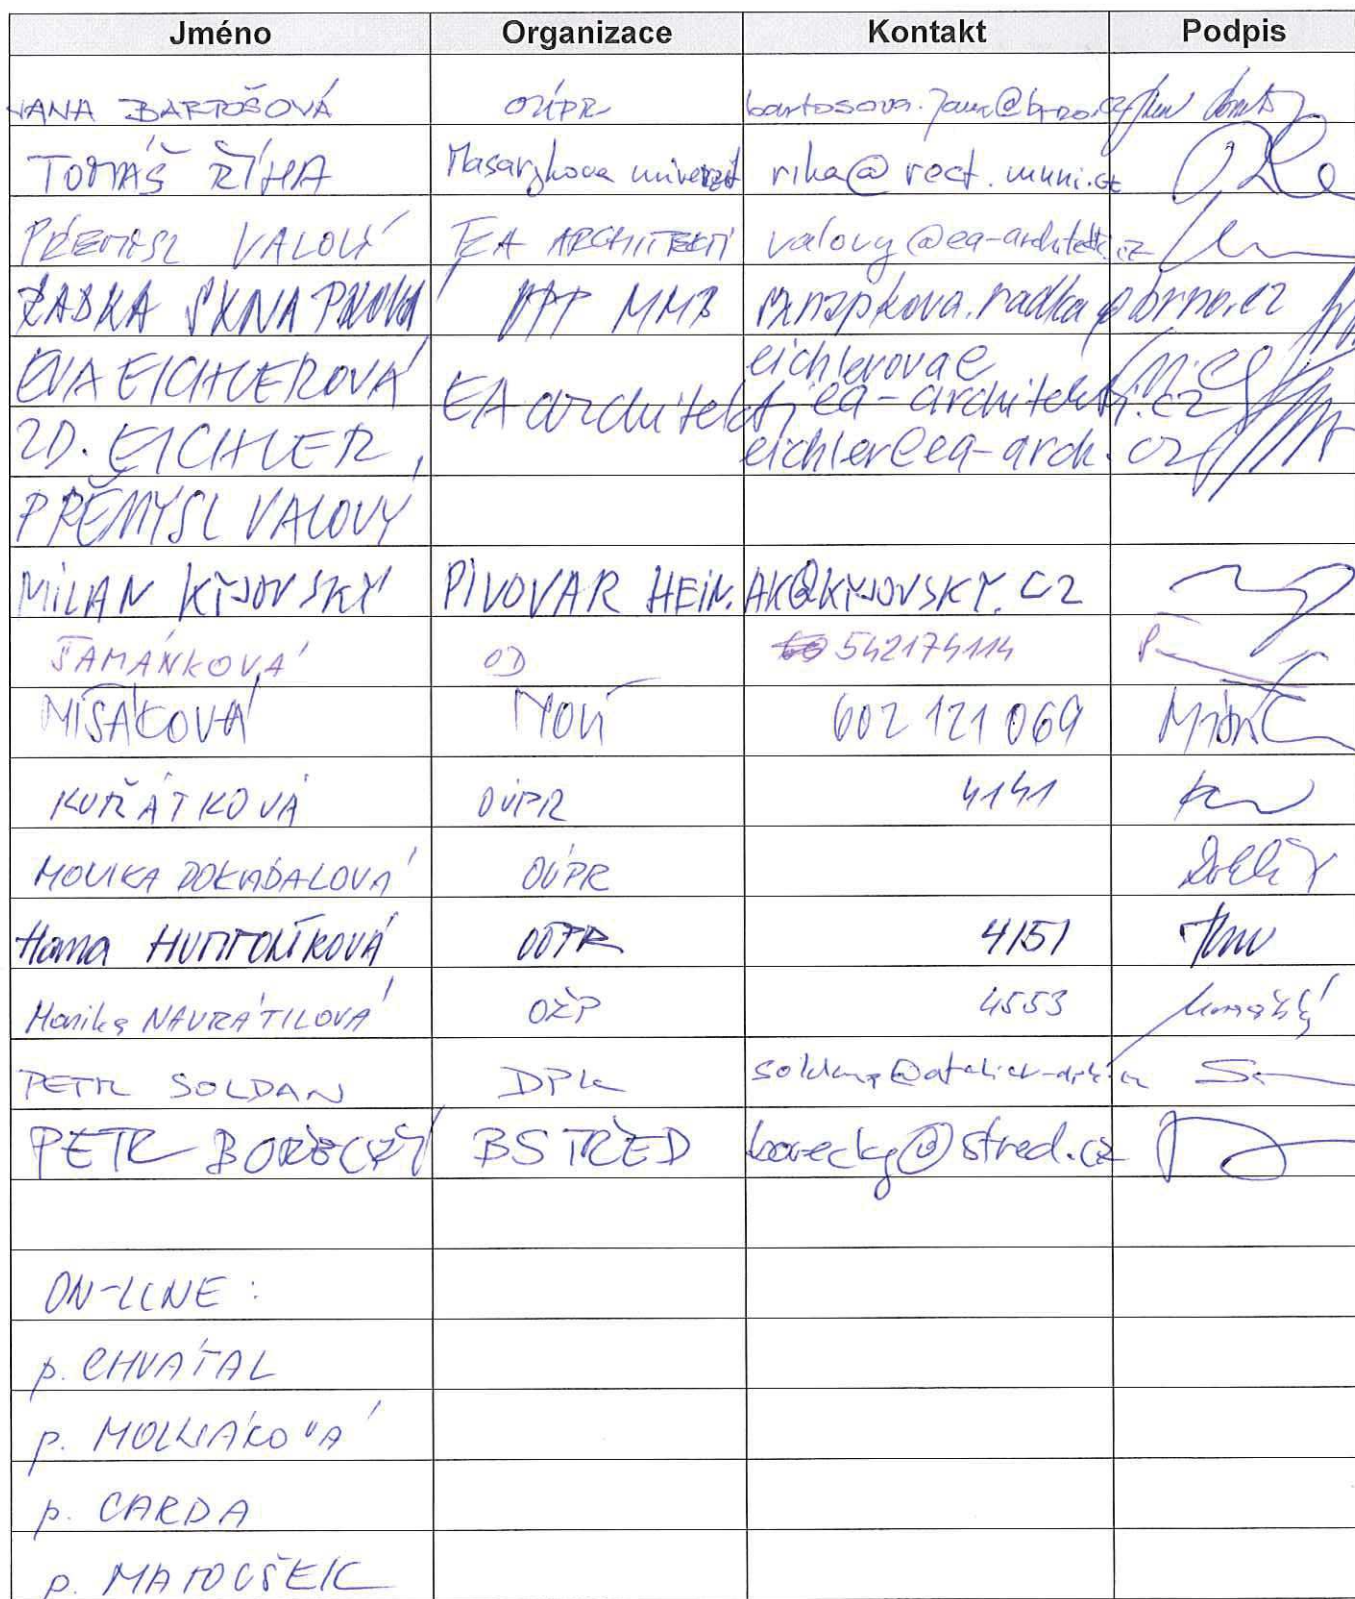 Jméno Organizace Kontakt Podpis
JANA BARTOŠOVÁ OÚPR bartosova.jana@brno.cz
TOMÁŠ ŘÍHA Masarykova univerzit riha@rect.muni.cz
PŘEMYSL VALOVÝ EA ARCHITEKTI valovy@ea-architekti.cz
RADKA OPP MMB radka@brno.cz
EVA EICHLEROVÁ EA architekti eichlerova@
ea-architekti.cz
ZD. EICHLER, eichler@ea-arch.cz
PŘEMYSL VALOVÝ
MILAN KYJOVSKÝ PIVOVAR HEIN. AK@KYJOVSKY.CZ
ŠAMÁNKOVÁ OD 542174114
MIŠÁKOVÁ 602 121 069
KUŘÁTKOVÁ OÚPR 4141
MONIKA DOKÁDALOVÁ OÚPR
Hana OÚPR 4151
Monika NAVRÁTILOVÁ OŽP 4553
PETR SOLDAN DPK
PETR BOŘECKÝ BSTŘED borecky@stred.cz
ON-LINE:
p. CHVÁTAL
p.
p. CARDA
p. MATOUŠEK